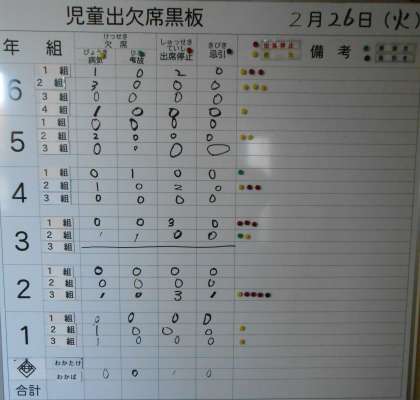 児童出欠席黒板 2月26日(火)
年 組 けっせき 欠席 びょうき 病気 じこ 事故 しゅっせきていし 出席停止 きびき 忌引 出席停止 備考
6 1組 1 0 2 0
2組 3 0 0 0
3組 0 0 0 0
4組 1 0 0 0
5 1組 0 0 0 0
2組 2 0 0 0
3組 0 0 0 0
4 1組 0 1 0 0
2組 1 0 2 0
3組 0 0 0 0
3 1組 0 0 3 0
2組 1 1 0 0
3組
2 1組 0 0 0 0
2組 0 0 0 0
3組 1 0 3 1
1 1組 0 0 0 0
2組 1 0 0 0
3組 1 0 0 0
わかたけ
わかば 0 0 1 0
合計